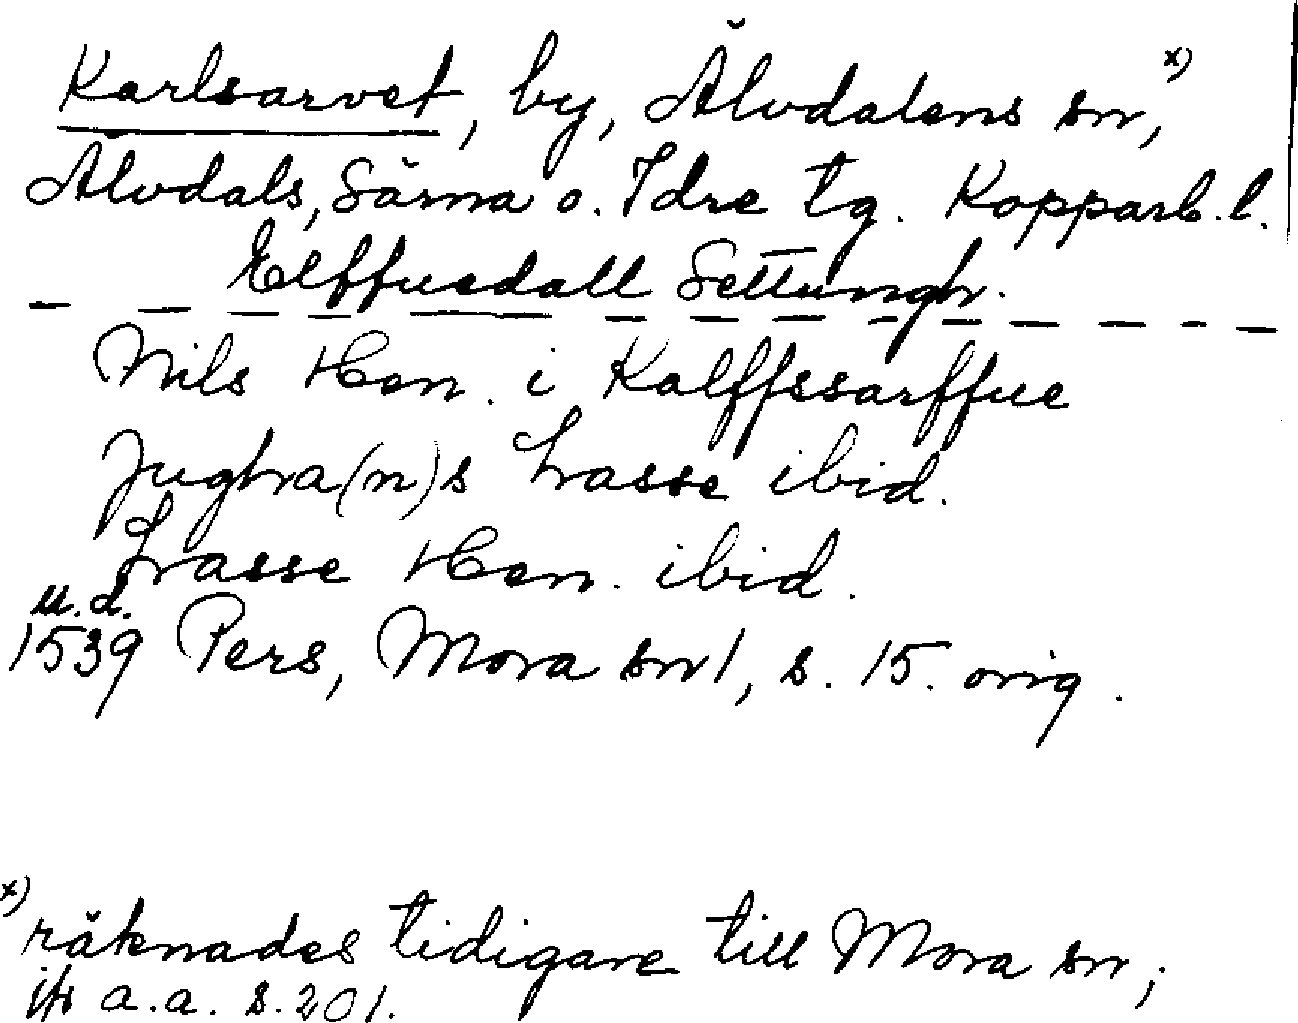 Karlsarvet, by, Älvdalens sn, x)
Älvdals, Särna o. Idre tg. Kopparb. l.
Elffuedall Settungh.
Nils Hen. i Kalffssarffue
Jughra(n)s Lasse ibid.
Lasse Hen. ibid.
u.d.
1539 Pers, Mora sn 1, s. 15. orig.
x) räknades tidigare till Mora sn;
jfr a.a. s. 201.